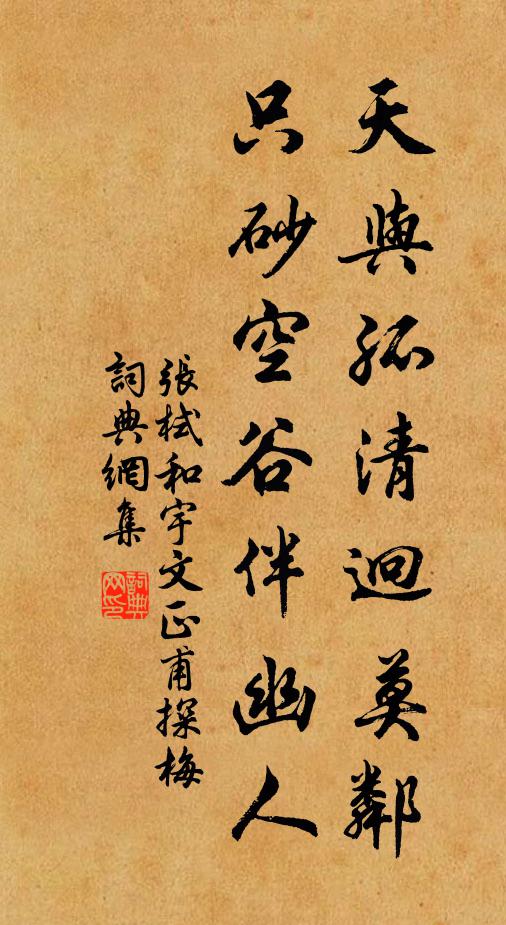 天與孤清迥莫鄰
只砂空谷伴幽人
張栻和宇文正甫探梅
詞典網集
詞典网印